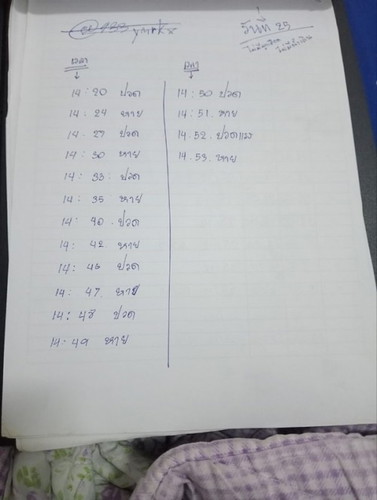 วันที่ 25
เวลา
14:20 ปวด
14:24 หาย
14:27 ปวด
14:30 หาย
14:33 ปวด
14:35 หาย
14:40 ปวด
14:42 หาย
14:46 ปวด
14:47 หาย
14:48 ปวด
14:49 หาย
เวลา
14:50 ปวด
14:51 หาย
14.52 ปวด
14.53 หาย